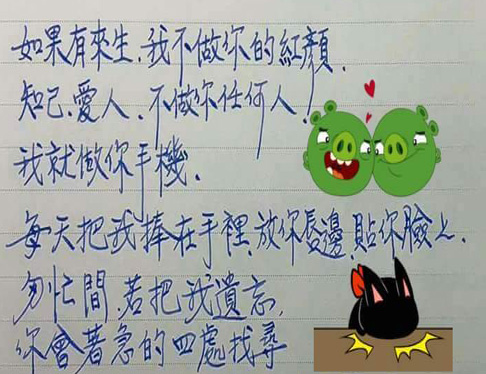 如果有來生.我不做你的紅顏.
知己.愛人.不做你任何人!
我就做你手機.
每天把我捧在手裡.放你唇邊.貼你臉上.
匆忙間.若把我遺忘.
你會著急的四處找尋